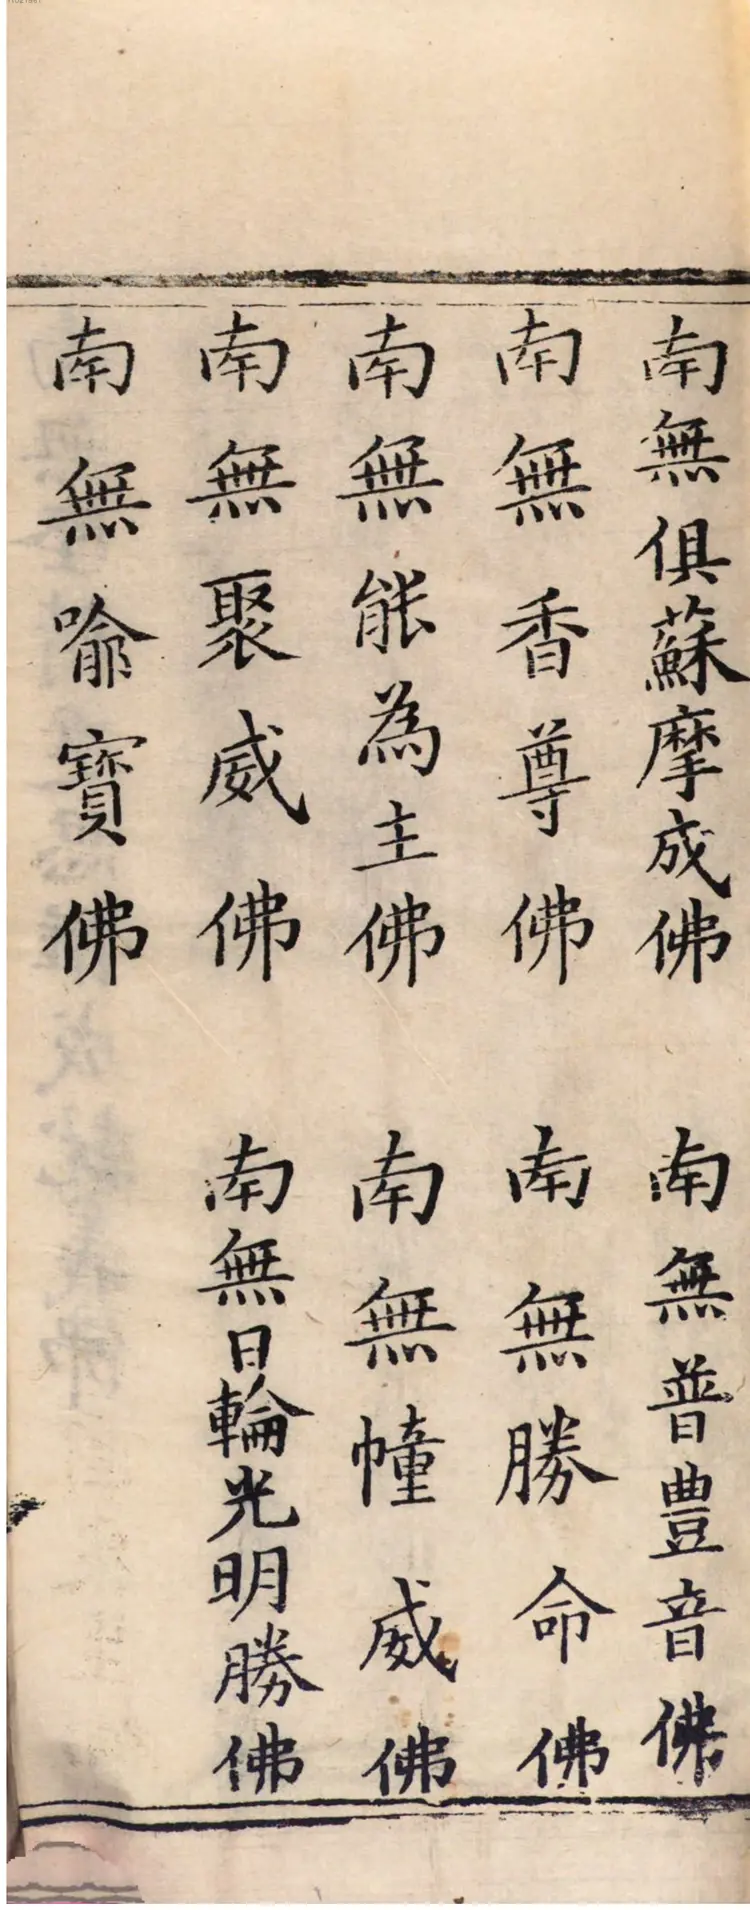 南無俱蘇摩成佛
南無普豊音佛
南無香尊佛
南無勝命佛
南無能為主佛
南無幢威佛
南無聚威佛
南無日輪光明勝佛
南無喻寶佛